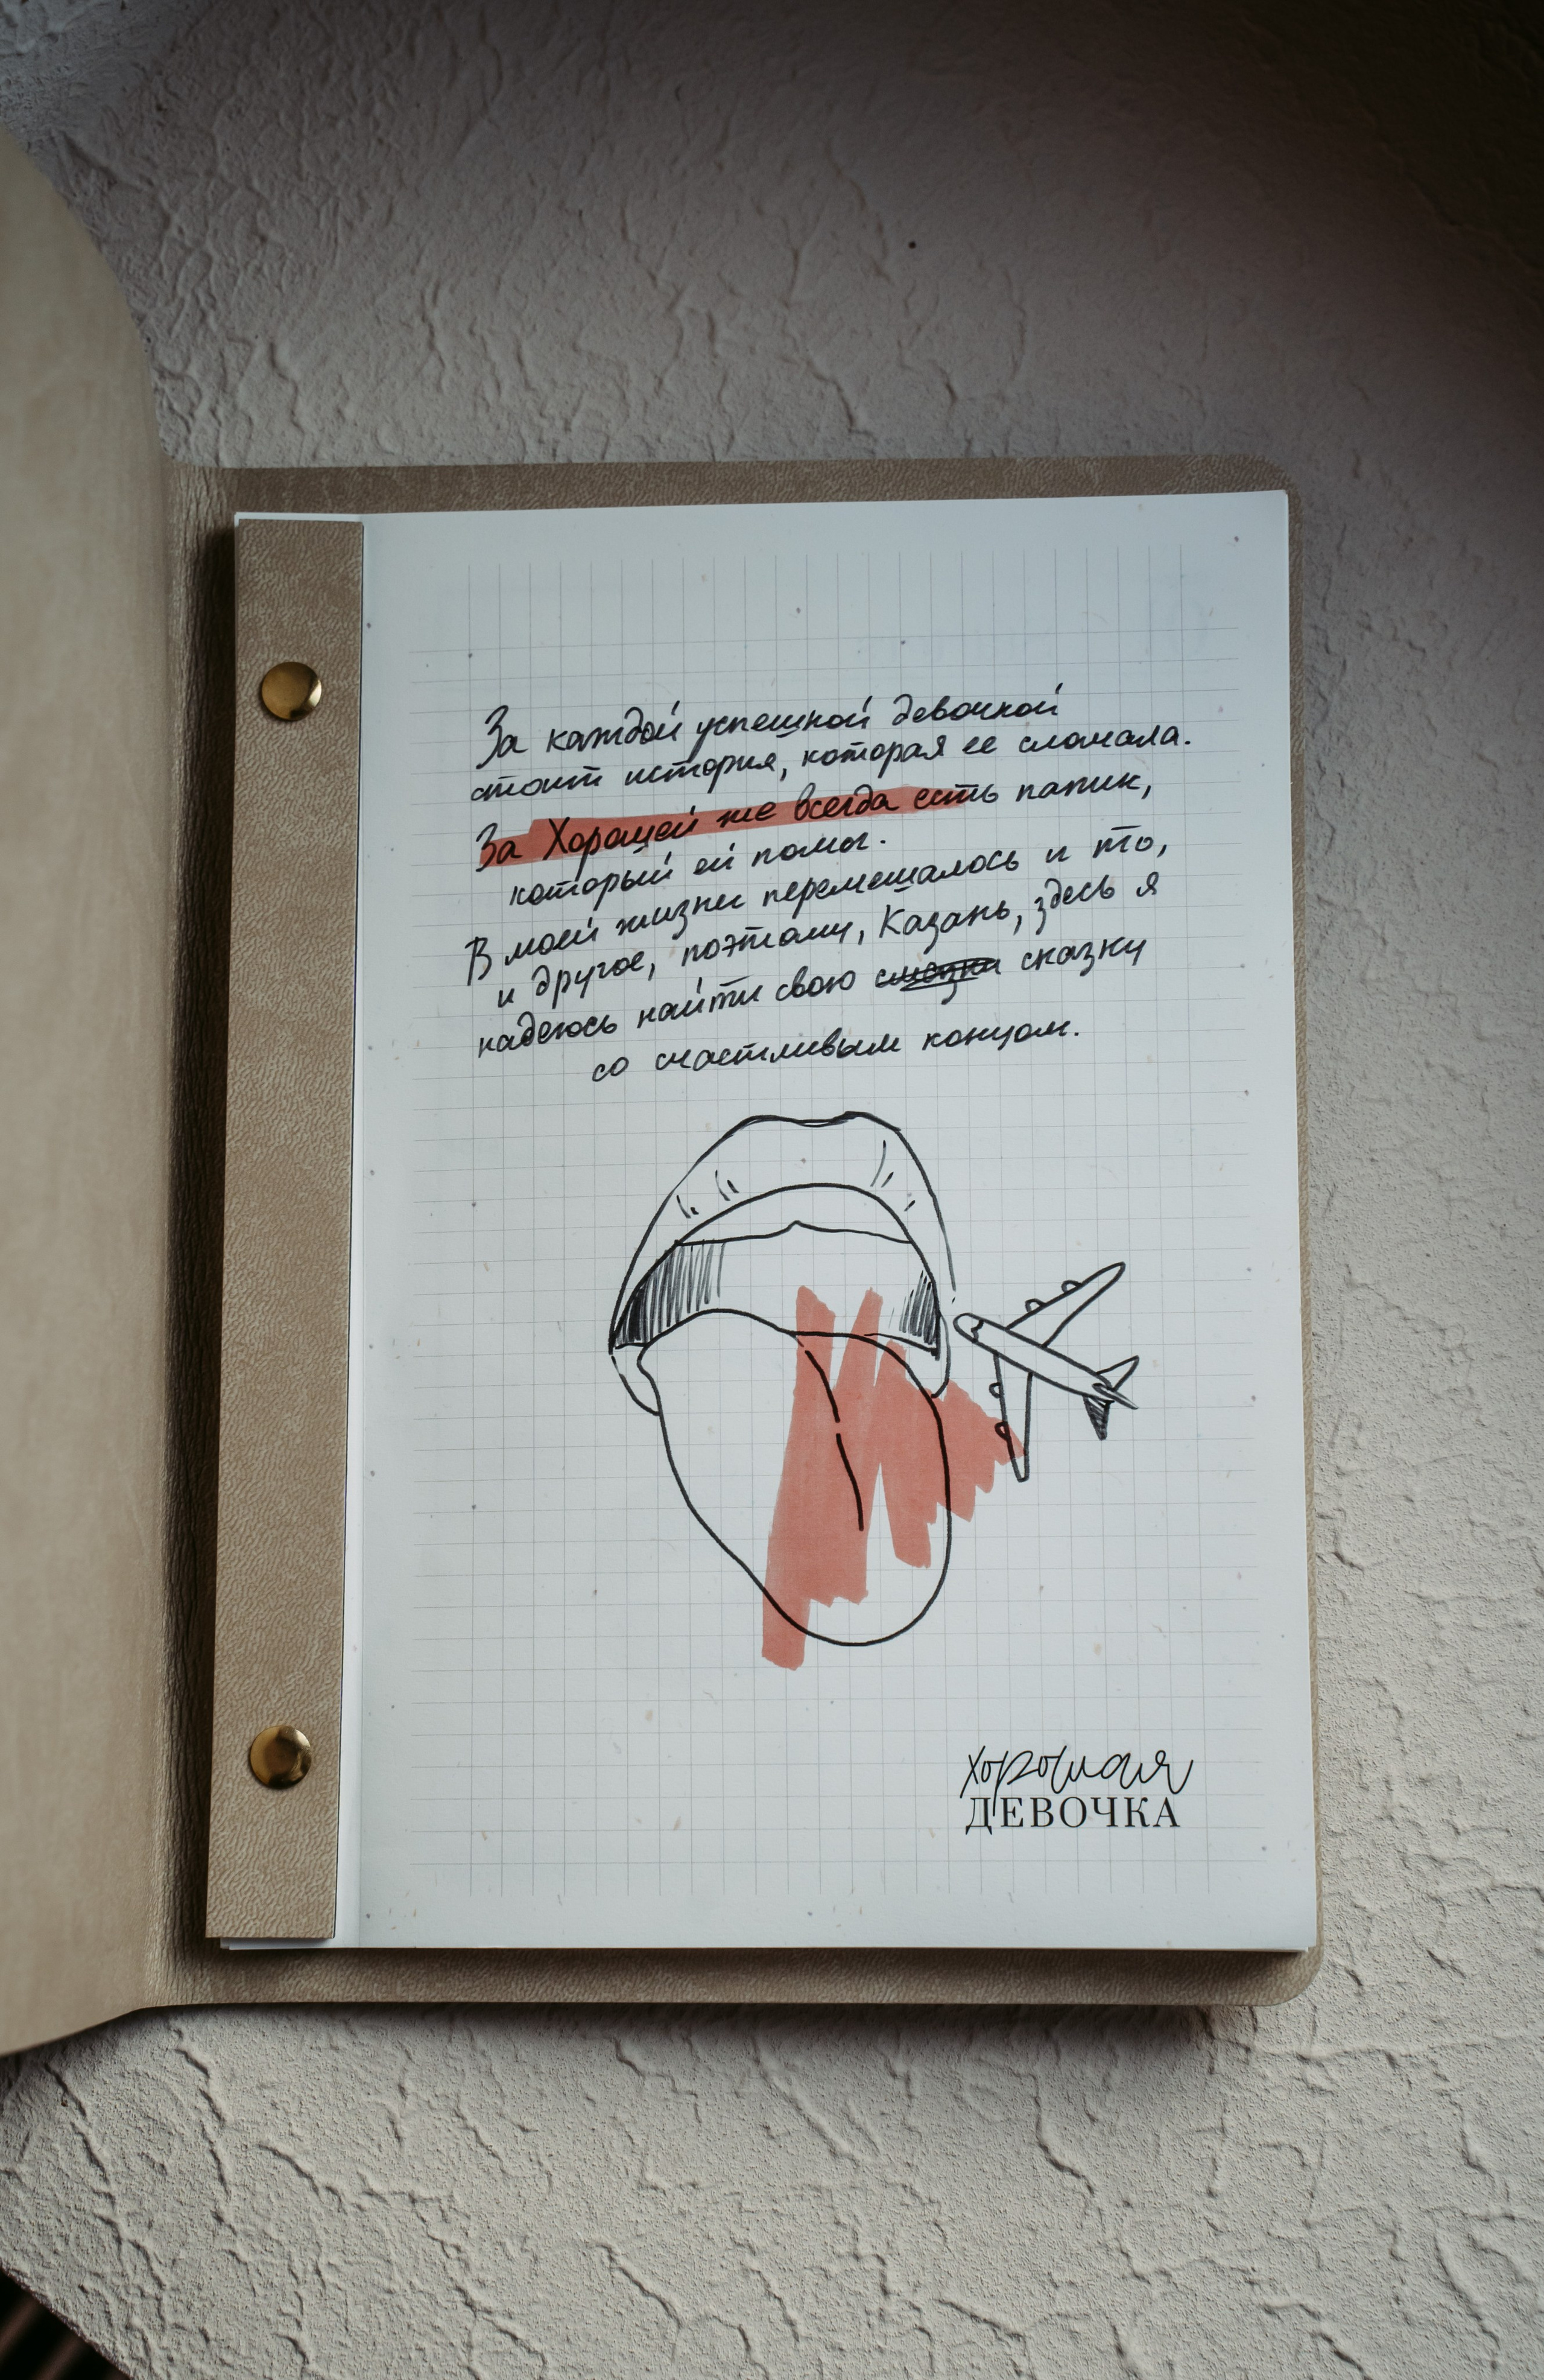 За каждой успешной девочкой
стоит история, которая ее сломала.
За Хорошей же всегда есть папик,
который ей помог.
В моей жизни перемешалось и то,
и другое, поэтому, Казань, здесь я
надеюсь найти свою сказку
со счастливым концом.
хорошая
ДЕВОЧКА